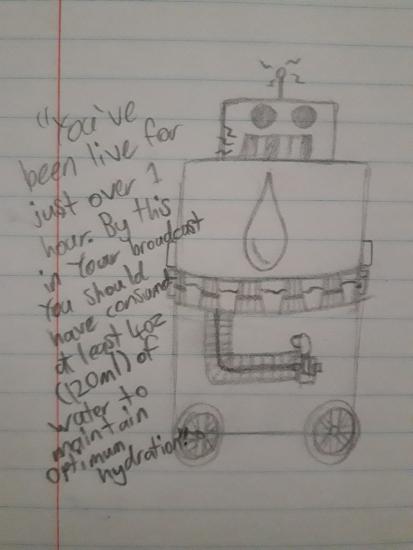 "You've
been live for
just over 1
hour. By this
in Your broadcast
You should
have consumed
at least 4oz
(120ml) of
water to
maintain
optimum
hydration!"